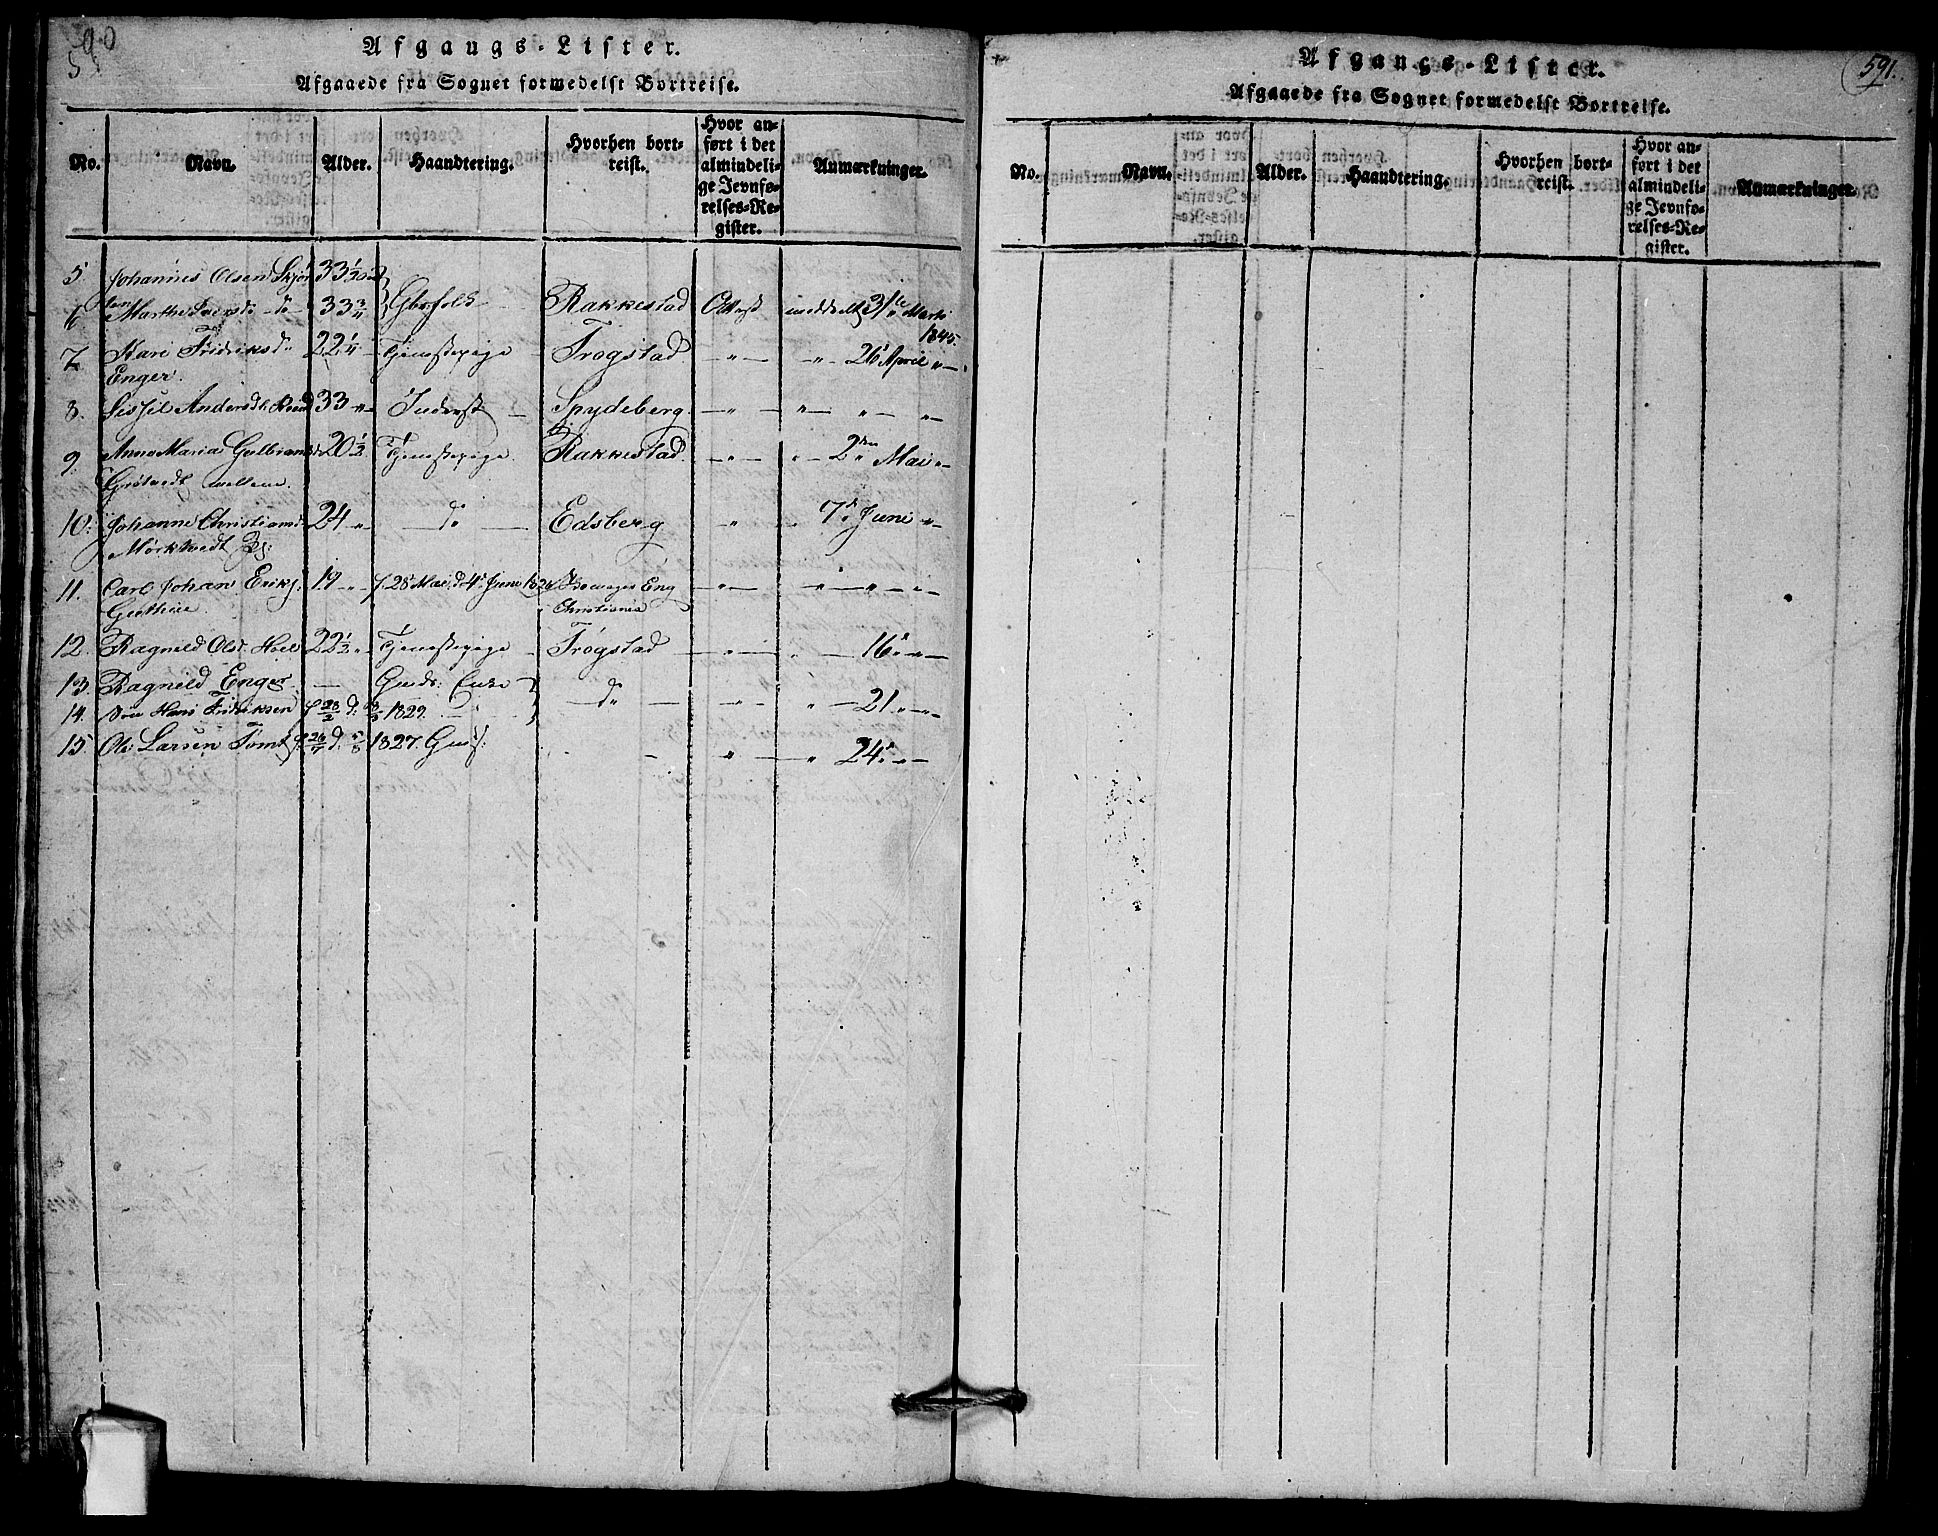 590
Afgangs-Lister.
Afgaaede fra Sognet formedelst Bortreise.
No. Navn. Alder. Haandtering. Hvorhen bort-
reist.
Hvor an-
ført i det
almindeli-
ge Jevnfø-
relses-Re-
gister.
Anmærkninger.
5 Johannes Olsen Skjør 33
6 Marthe Iversd do 33 3/4 Gbrfolk Rakkestad Attest meddelt 31te Marts
1845.
7. Kari Fridriksd. 22 1/4 Tjenestepige Trøgstad " " 26 April "
Enger.
8. Sissil Andersdt. 33 " Inderst Spydeberg " " " "
9. Anne Maria Gulbrands 20 1/2 Tjenestepige Rakkestad. " " 2den Mai "
Grøtvedt mellem
10. Johanne Christians 24 " do Edsberg " " 7de Juni "
Mørktvedt
11. Carl Johan Eriks. 19 " f. 28 Mai d. 4 Juni 1826 Eng " " " "
Christiania
12. Ragnild Olsd. Hoel 22 1/2 " Tjenestepige Trøgstad " " 16 " "
13. Ragnild Enger Enke do " " 21 " "
14. Søn Hans Fridriksen f 28/2 d. 8/3 1829. "
15. Ole Larsen Tomt f. 26/7 d. 5/8 1827. " " 24 " "
591.
Afgangs-Lister.
Afgaaede fra Sognet formedelst Bortreise.
No. Navn. Alder. Haandtering. Hvorhen bort-
reist.
Hvor an-
ført i det
almindeli-
ge Jevnfø-
relses-Re-
gister.
Anmærkninger.